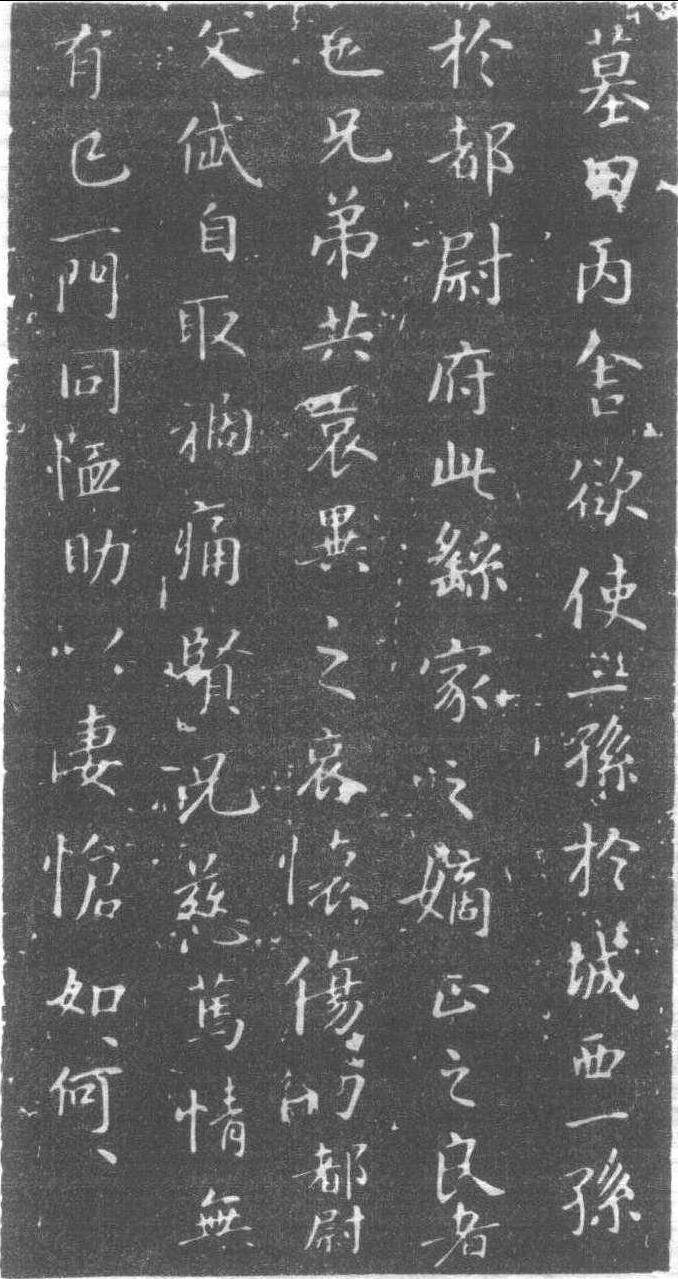 墓田丙舍欲使一孫於城西一孫
於都尉府此繇家之嫡正之良者
也兄弟共哀異之哀懷傷切都尉
文岱自取禍痛賢兄慈篤情無
有已一門同恤助以凄愴如、何、